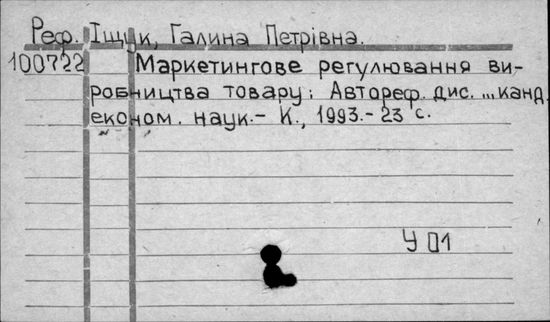 Реф. Іщук, Галина Петрівна.
100722 Маркетингове регулювання ви-
робництва товару: Автореф. дис. ... канд.
економ. наук.- К., 1993.- 23 с.
У 01